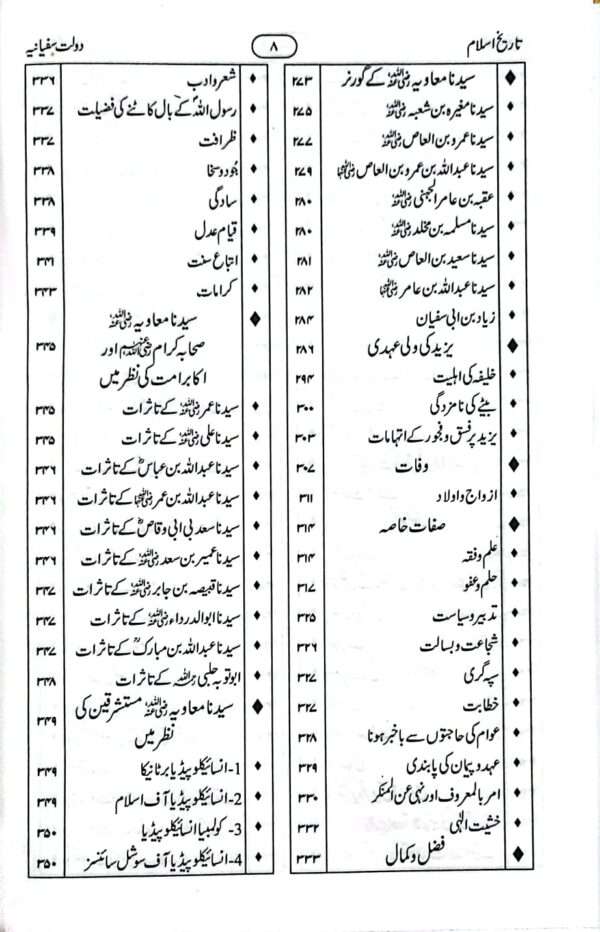 تاریخ اسلام ۸ دولت سفیانیہ
◆ سیدنا معاویہ رضی اللہ عنہ کے گورنر ۲۷۳
♦ سیدنا مغیرہ بن شعبہ رضی اللہ عنہ ۲۷۵
♦ سیدنا عمرو بن العاص رضی اللہ عنہ ۲۷۷
♦ سیدنا عبداللہ بن عمرو بن العاص رضی اللہ عنہما ۲۷۹
♦ عقبہ بن عامر الجہنی رضی اللہ عنہ ۲۸۰
♦ سیدنا مسلمہ بن مخلد رضی اللہ عنہ ۲۸۰
♦ سیدنا سعید بن العاص رضی اللہ عنہ ۲۸۱
♦ سیدنا عبداللہ بن عامر رضی اللہ عنہما ۲۸۲
♦ زیاد بن ابی سفیان ۲۸۴
◆ یزید کی ولی عہدی ۲۸۶
♦ خلیفہ کی اہلیت ۲۹۴
♦ بیٹے کی نامزدگی ۳۰۰
♦ یزید پر فسق و فجور کے اتہامات ۳۰۳
◆ وفات ۳۰۷
♦ ازواج و اولاد ۳۱۱
◆ صفات خاصہ ۳۱۴
♦ علم و فقہ ۳۱۴
♦ حلم و عفو ۳۱۷
♦ تدبیر و سیاست ۳۲۵
♦ شجاعت و بسالت ۳۲۶
♦ سپہ گری ۳۲۷
♦ خطابت ۳۲۷
♦ عوام کی حاجتوں سے باخبر ہونا ۳۲۸
♦ عہد و پیمان کی پابندی ۳۲۹
♦ امر بالمعروف اور نہی عن المنکر ۳۳۰
♦ خشیت الٰہی ۳۳۲
◆ فضل و کمال ۳۳۳
♦ شعر و ادب ۳۳۶
♦ رسول اللہؐ کے بال کاٹنے کی فضیلت ۳۳۷
♦ ظرافت ۳۳۷
♦ جُود و سخا ۳۳۸
♦ سادگی ۳۳۸
♦ قیام عدل ۳۳۹
♦ اتباع سنت ۳۴۱
♦ کرامات ۳۴۳
◆ سیدنا معاویہ رضی اللہ عنہ
صحابہ کرام رضی اللہ عنہم اور ۳۴۵
اکابر امت کی نظر میں
♦ سیدنا عمر رضی اللہ عنہ کے تاثرات ۳۴۵
♦ سیدنا علی رضی اللہ عنہ کے تاثرات ۳۴۵
♦ سیدنا عبداللہ بن عباسؓ کے تاثرات ۳۴۶
♦ سیدنا عبداللہ بن عمر رضی اللہ عنہما کے تاثرات ۳۴۶
♦ سیدنا سعد بی ابی وقاصؓ کے تاثرات ۳۴۶
♦ سیدنا عمیر بن سعد رضی اللہ عنہ کے تاثرات ۳۴۶
♦ سیدنا قبیصہ بن جابر رضی اللہ عنہ کے تاثرات ۳۴۷
♦ سیدنا ابوالدرداء رضی اللہ عنہ کے تاثرات ۳۴۷
♦ سیدنا عبداللہ بن مبارکؒ کے تاثرات ۳۴۷
♦ ابوتوبہ حلبی رحمہ اللہ کے تاثرات ۳۴۸
◆ سیدنا معاویہ رضی اللہ عنہ مستشرقین کی ۳۴۹
نظر میں
♦ 1- انسائیکلوپیڈیا برٹانیکا ۳۴۹
♦ 2- انسائیکلوپیڈیا آف اسلام ۳۴۹
♦ 3- کولمبیا انسائیکلوپیڈیا ۳۵۰
♦ 4- انسائیکلوپیڈیا آف سوشل سائنسز ۳۵۰